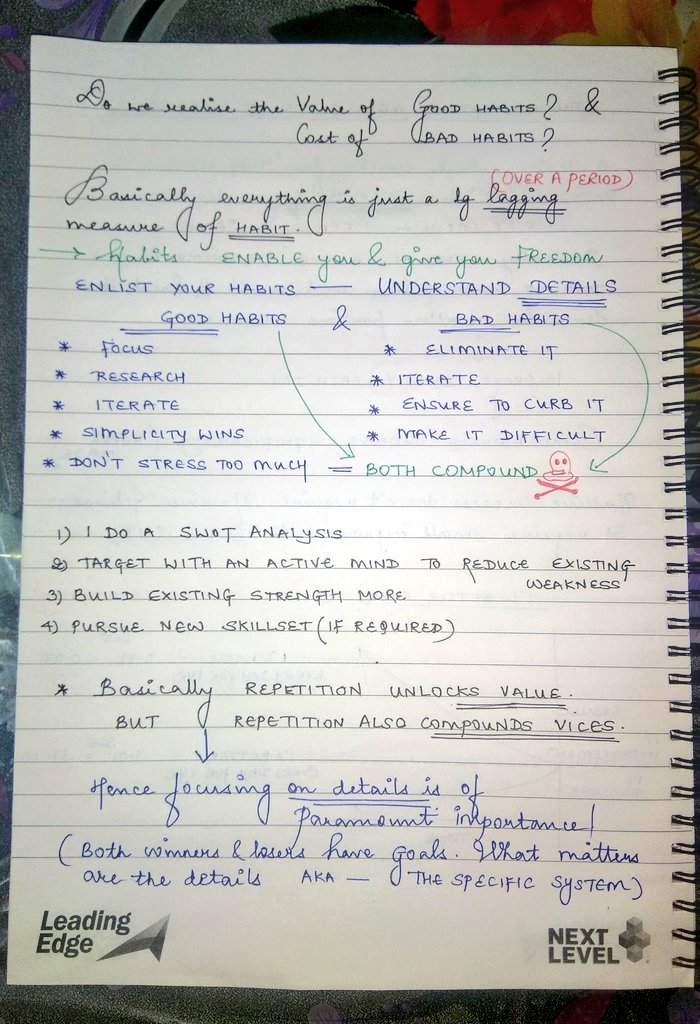 Do we realise the Value of GOOD HABITS? &
Cost of BAD HABITS?
(OVER A PERIOD)
Basically everything is just a lg lagging
measure of HABIT.
→ Habits ENABLE you & give you FREEDOM
ENLIST YOUR HABITS — UNDERSTAND DETAILS
GOOD HABITS & BAD HABITS
* FOCUS * ELIMINATE IT
* RESEARCH * ITERATE
* ITERATE * ENSURE TO CURB IT
* SIMPLICITY WINS * MAKE IT DIFFICULT
* DON'T STRESS TOO MUCH = BOTH COMPOUND
1) I DO A SWOT ANALYSIS
2) TARGET WITH AN ACTIVE MIND TO REDUCE EXISTING
WEAKNESS
3) BUILD EXISTING STRENGTH MORE
4) PURSUE NEW SKILLSET (IF REQUIRED)
* Basically REPETITION UNLOCKS VALUE.
BUT REPETITION ALSO COMPOUNDS VICES.
Hence focusing on details is of
Paramount importance!
(Both winners & losers have goals. What matters
are the details AKA — THE SPECIFIC SYSTEM)
Leading
Edge
NEXT
LEVEL